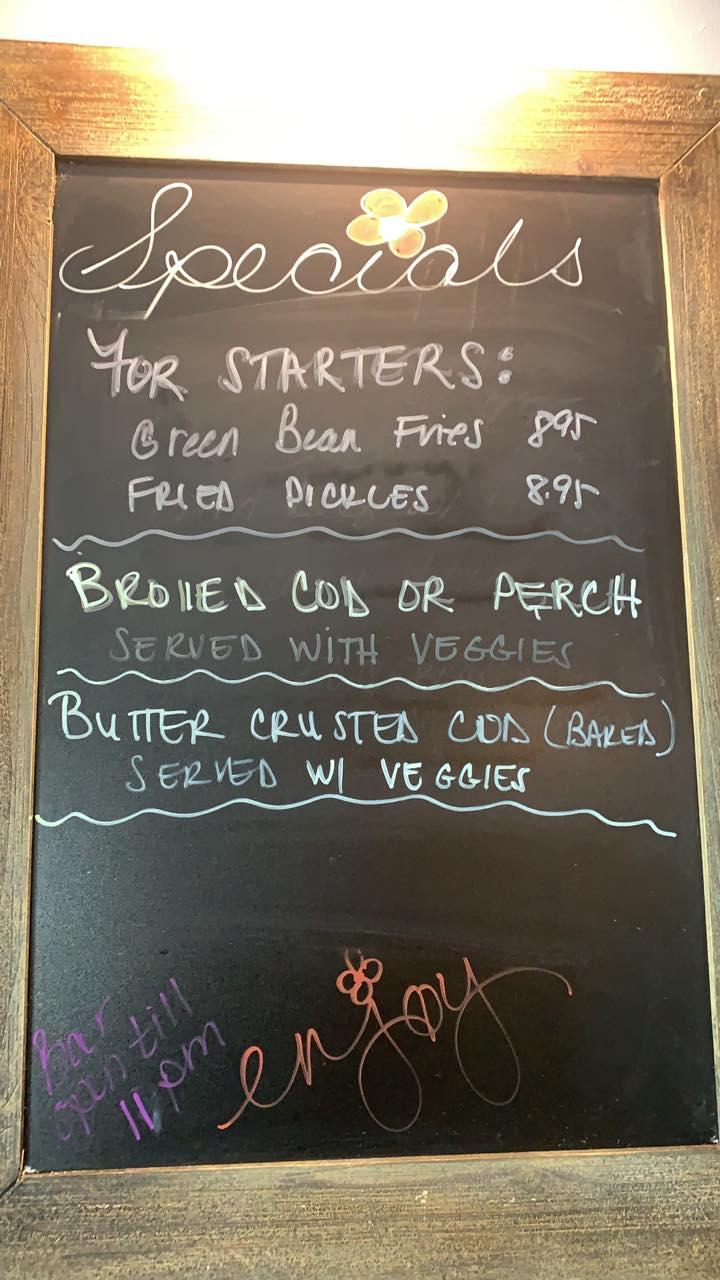 Specials
FOR STARTERS:
Green Bean Fries 895
FRIED PICKLES 8.95
BROILED COD OR PERCH
SERVED WITH VEGGIES
BUTTER CRUSTED COD (BAKED)
SERVED W/ VEGGIES
enjoy
Bar
open till
11 pm